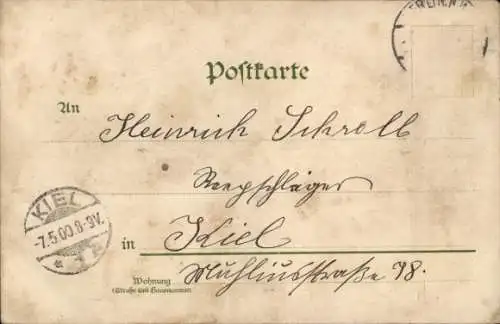 Postkarte
An Heinrich Schroll
Reepschläger
KIEL
-7.5.00.8-9V.
in Kiel
Wohnung
(Straße und Hausnummer)
Muhliusstraße 98.